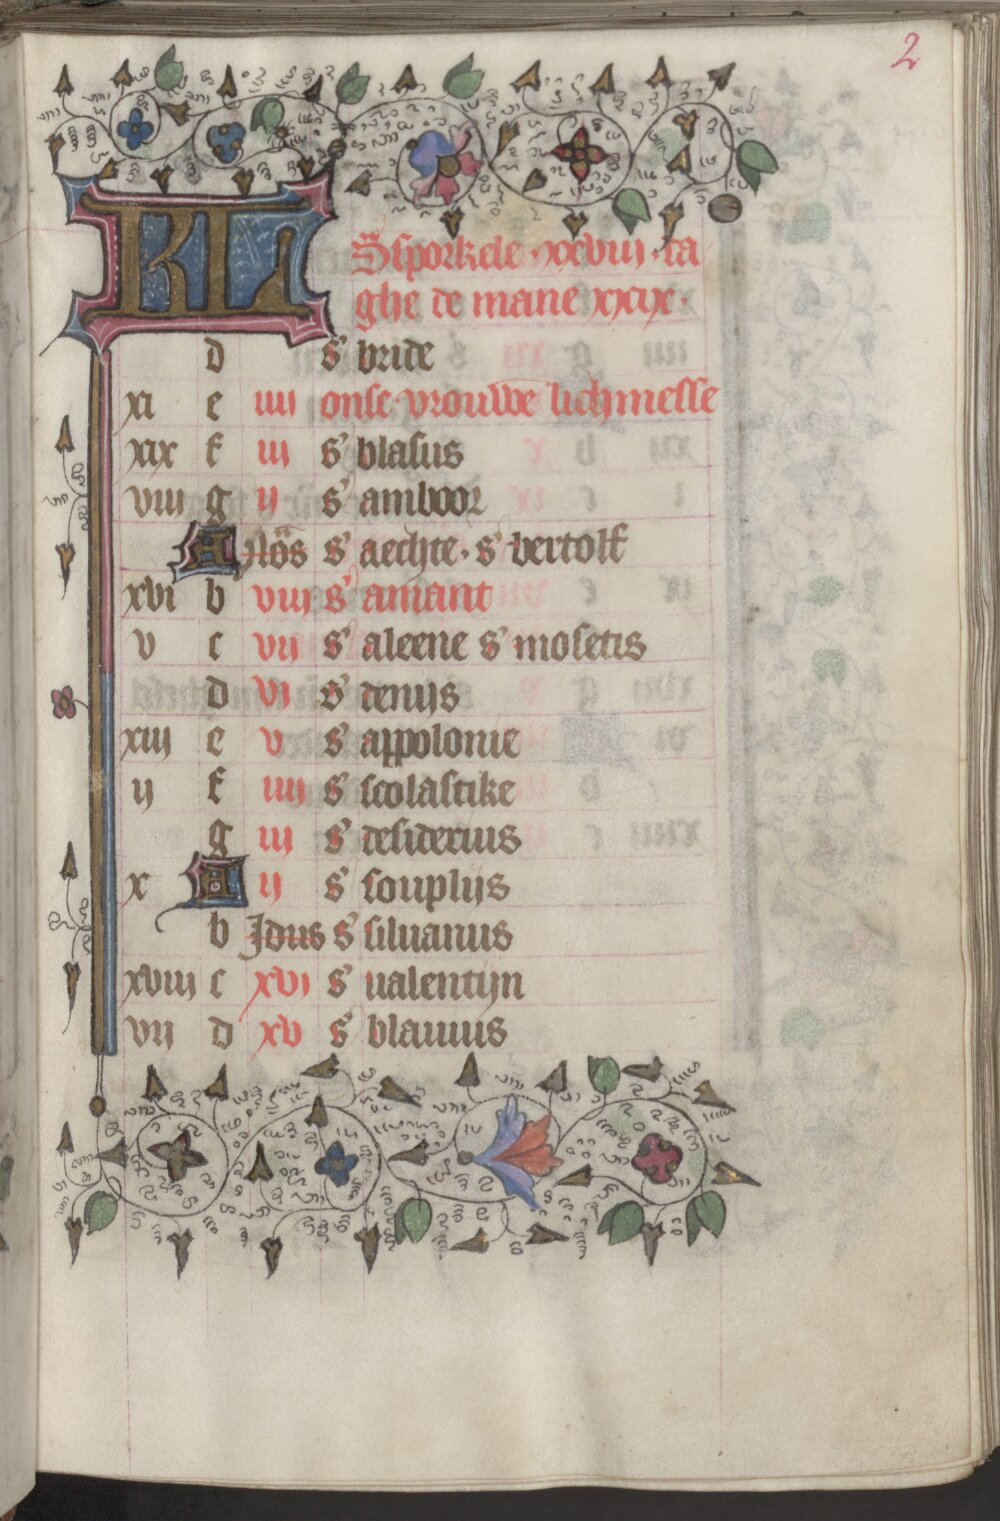 2
KL Ssporkele · xxviij · da
ghe de mane xxix ·
d s' bride
xi e iiij onse vrouwe lichmesse
xix f iij s' blasus
viij g ij s' amboor
A Nōs s' aechte · s' bertolf
xvi b viij s' amant
v c vij s' aleene s' mosetis
d vi s' denijs
xiij e v s' appolonie
ij f iiij s' scolastike
g iij s' desiderius
x A ij s' souplijs
b Idus s' siluanus
xviij c xvi s' ualentijn
vij d xv s' blauius